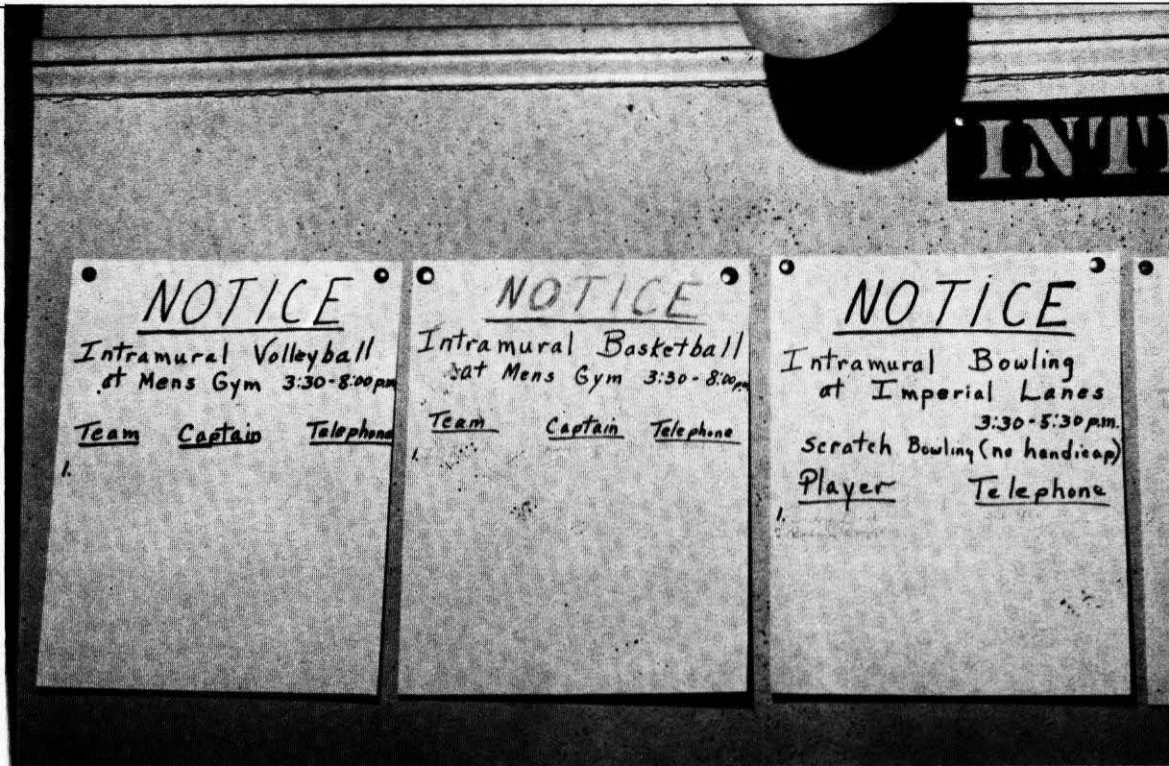 INT
NOTICE
Intramural Volleyball
at Mens Gym 3:30-8:00pm
Team Captain Telephone
1.
NOTICE
Intramural Basketball
at Mens Gym 3:30-8:00pm
Team Captain Telephone
1.
NOTICE
Intramural Bowling
at Imperial Lanes
3:30-5:30p.m.
Scratch Bowling (no handicap)
Player Telephone
1.